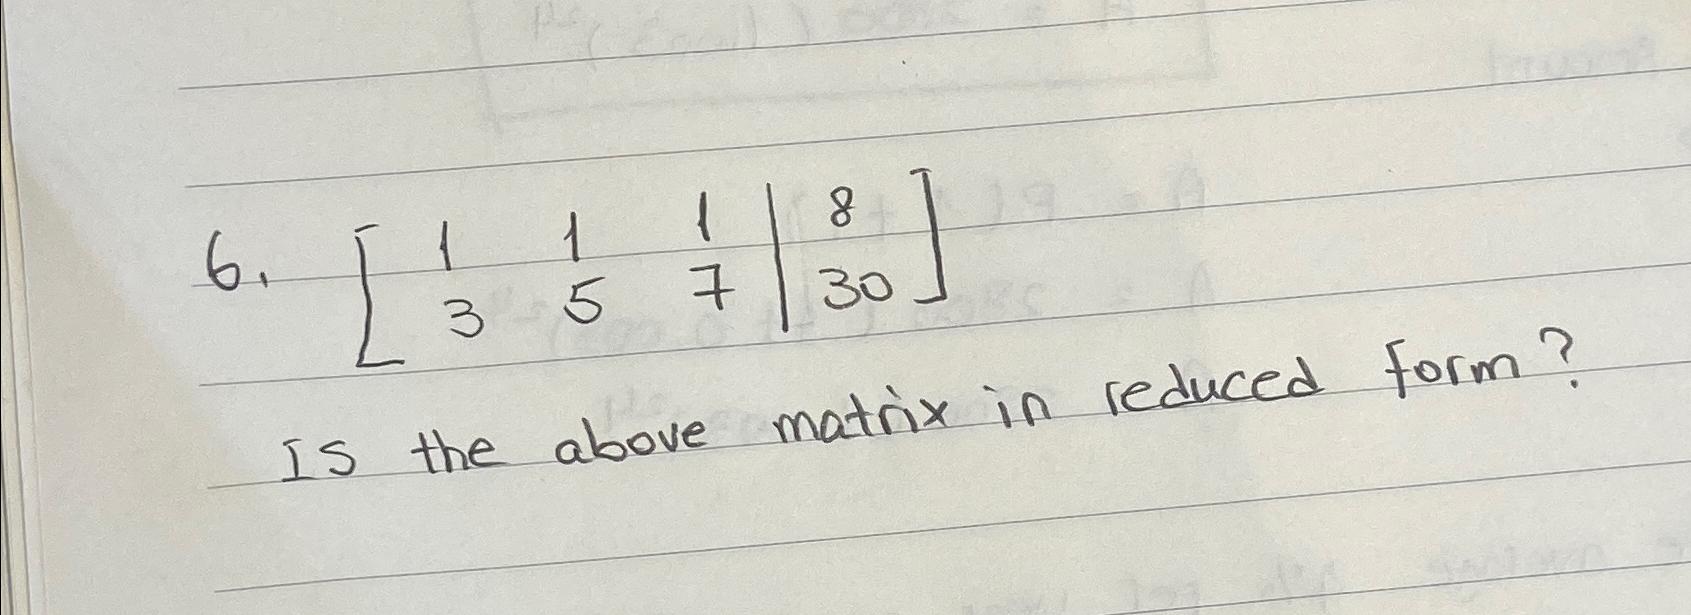 6. [ 1 1 1 | 8 ]
[ 3 5 7 | 30 ]
Is the above matrix in reduced form?